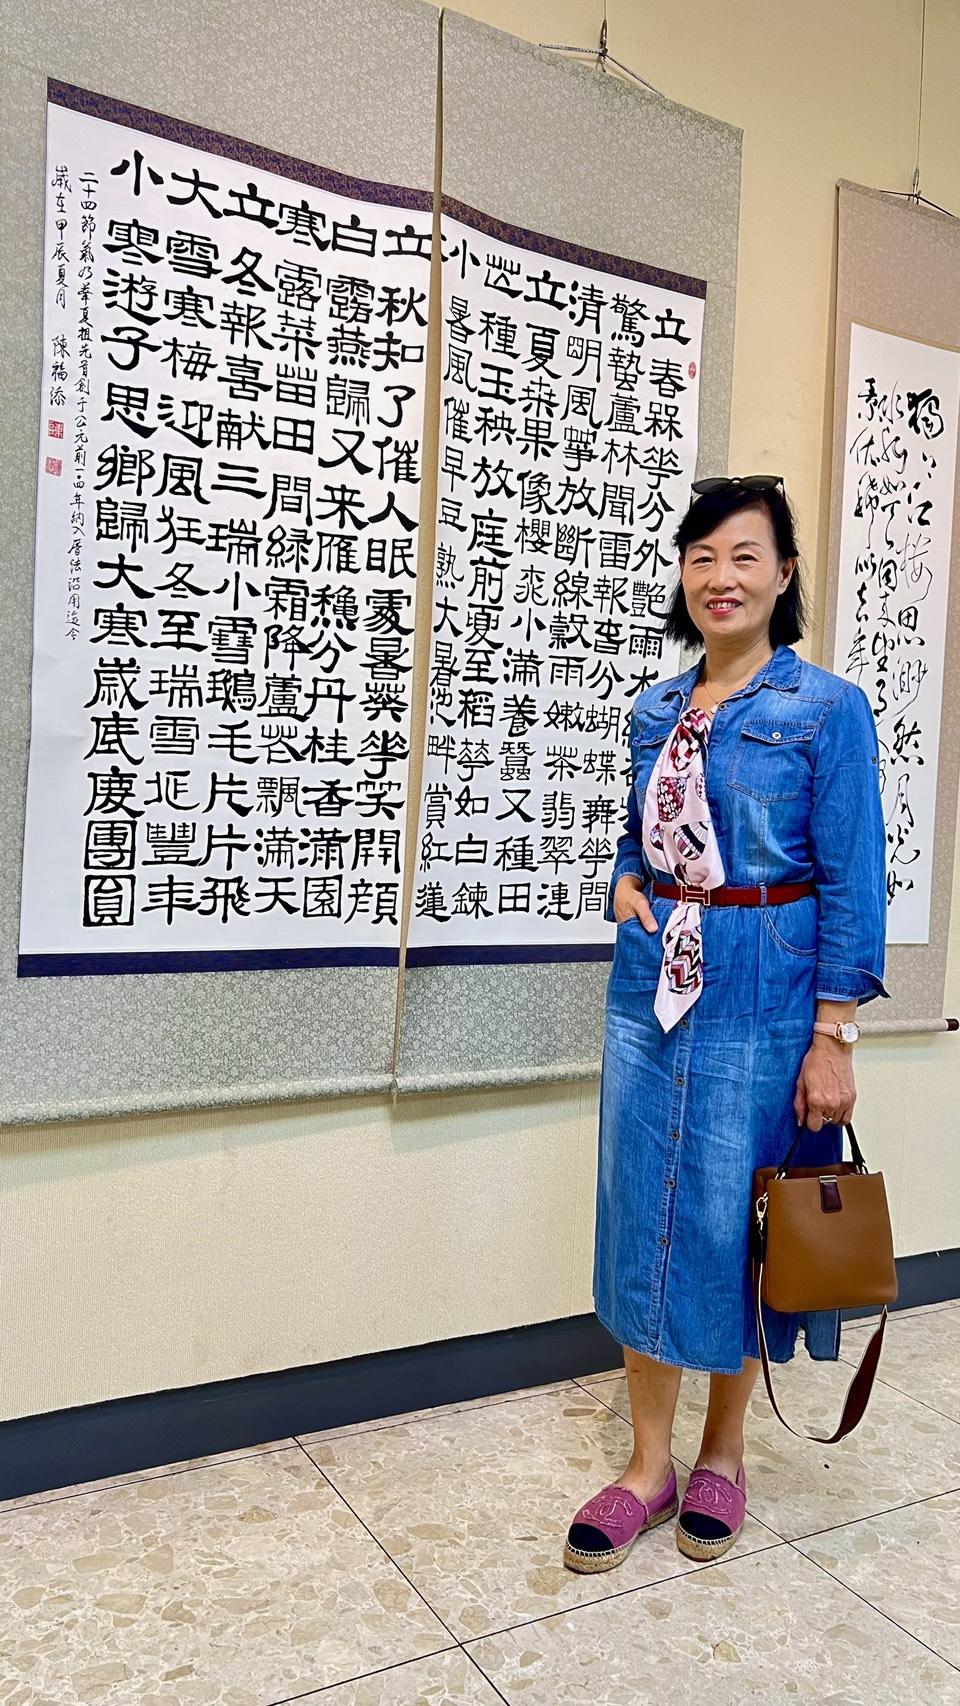 立春槑花分外艷雨水紅
驚蟄蘆林聞雷報春分蝴蝶舞花間
清明風箏放斷線穀雨嫩茶翡翠連
立夏桑果像櫻桃小滿養蠶又種田
芒種玉秧放庭前夏至稻花如白鍊
小暑風催早豆熟大暑池畔賞紅蓮
立秋知了催人眠處暑葵花笑開顏
白露燕歸又来雁穐分丹桂香滿園
寒露菜苗田間綠霜降蘆花飄滿天
立冬報喜献三瑞小雪鵝毛片片飛
大雪寒梅迎風狂冬至瑞雪兆豐年
小寒遊子思鄉歸大寒歲底慶團圓
二十四節氣乃華夏祖先首創于公元前一〇四年納入曆法沿用迄今
歲在甲辰夏月 陳福添
獨上江樓思渺然月光如
水水如天同来望月
景依稀似去年